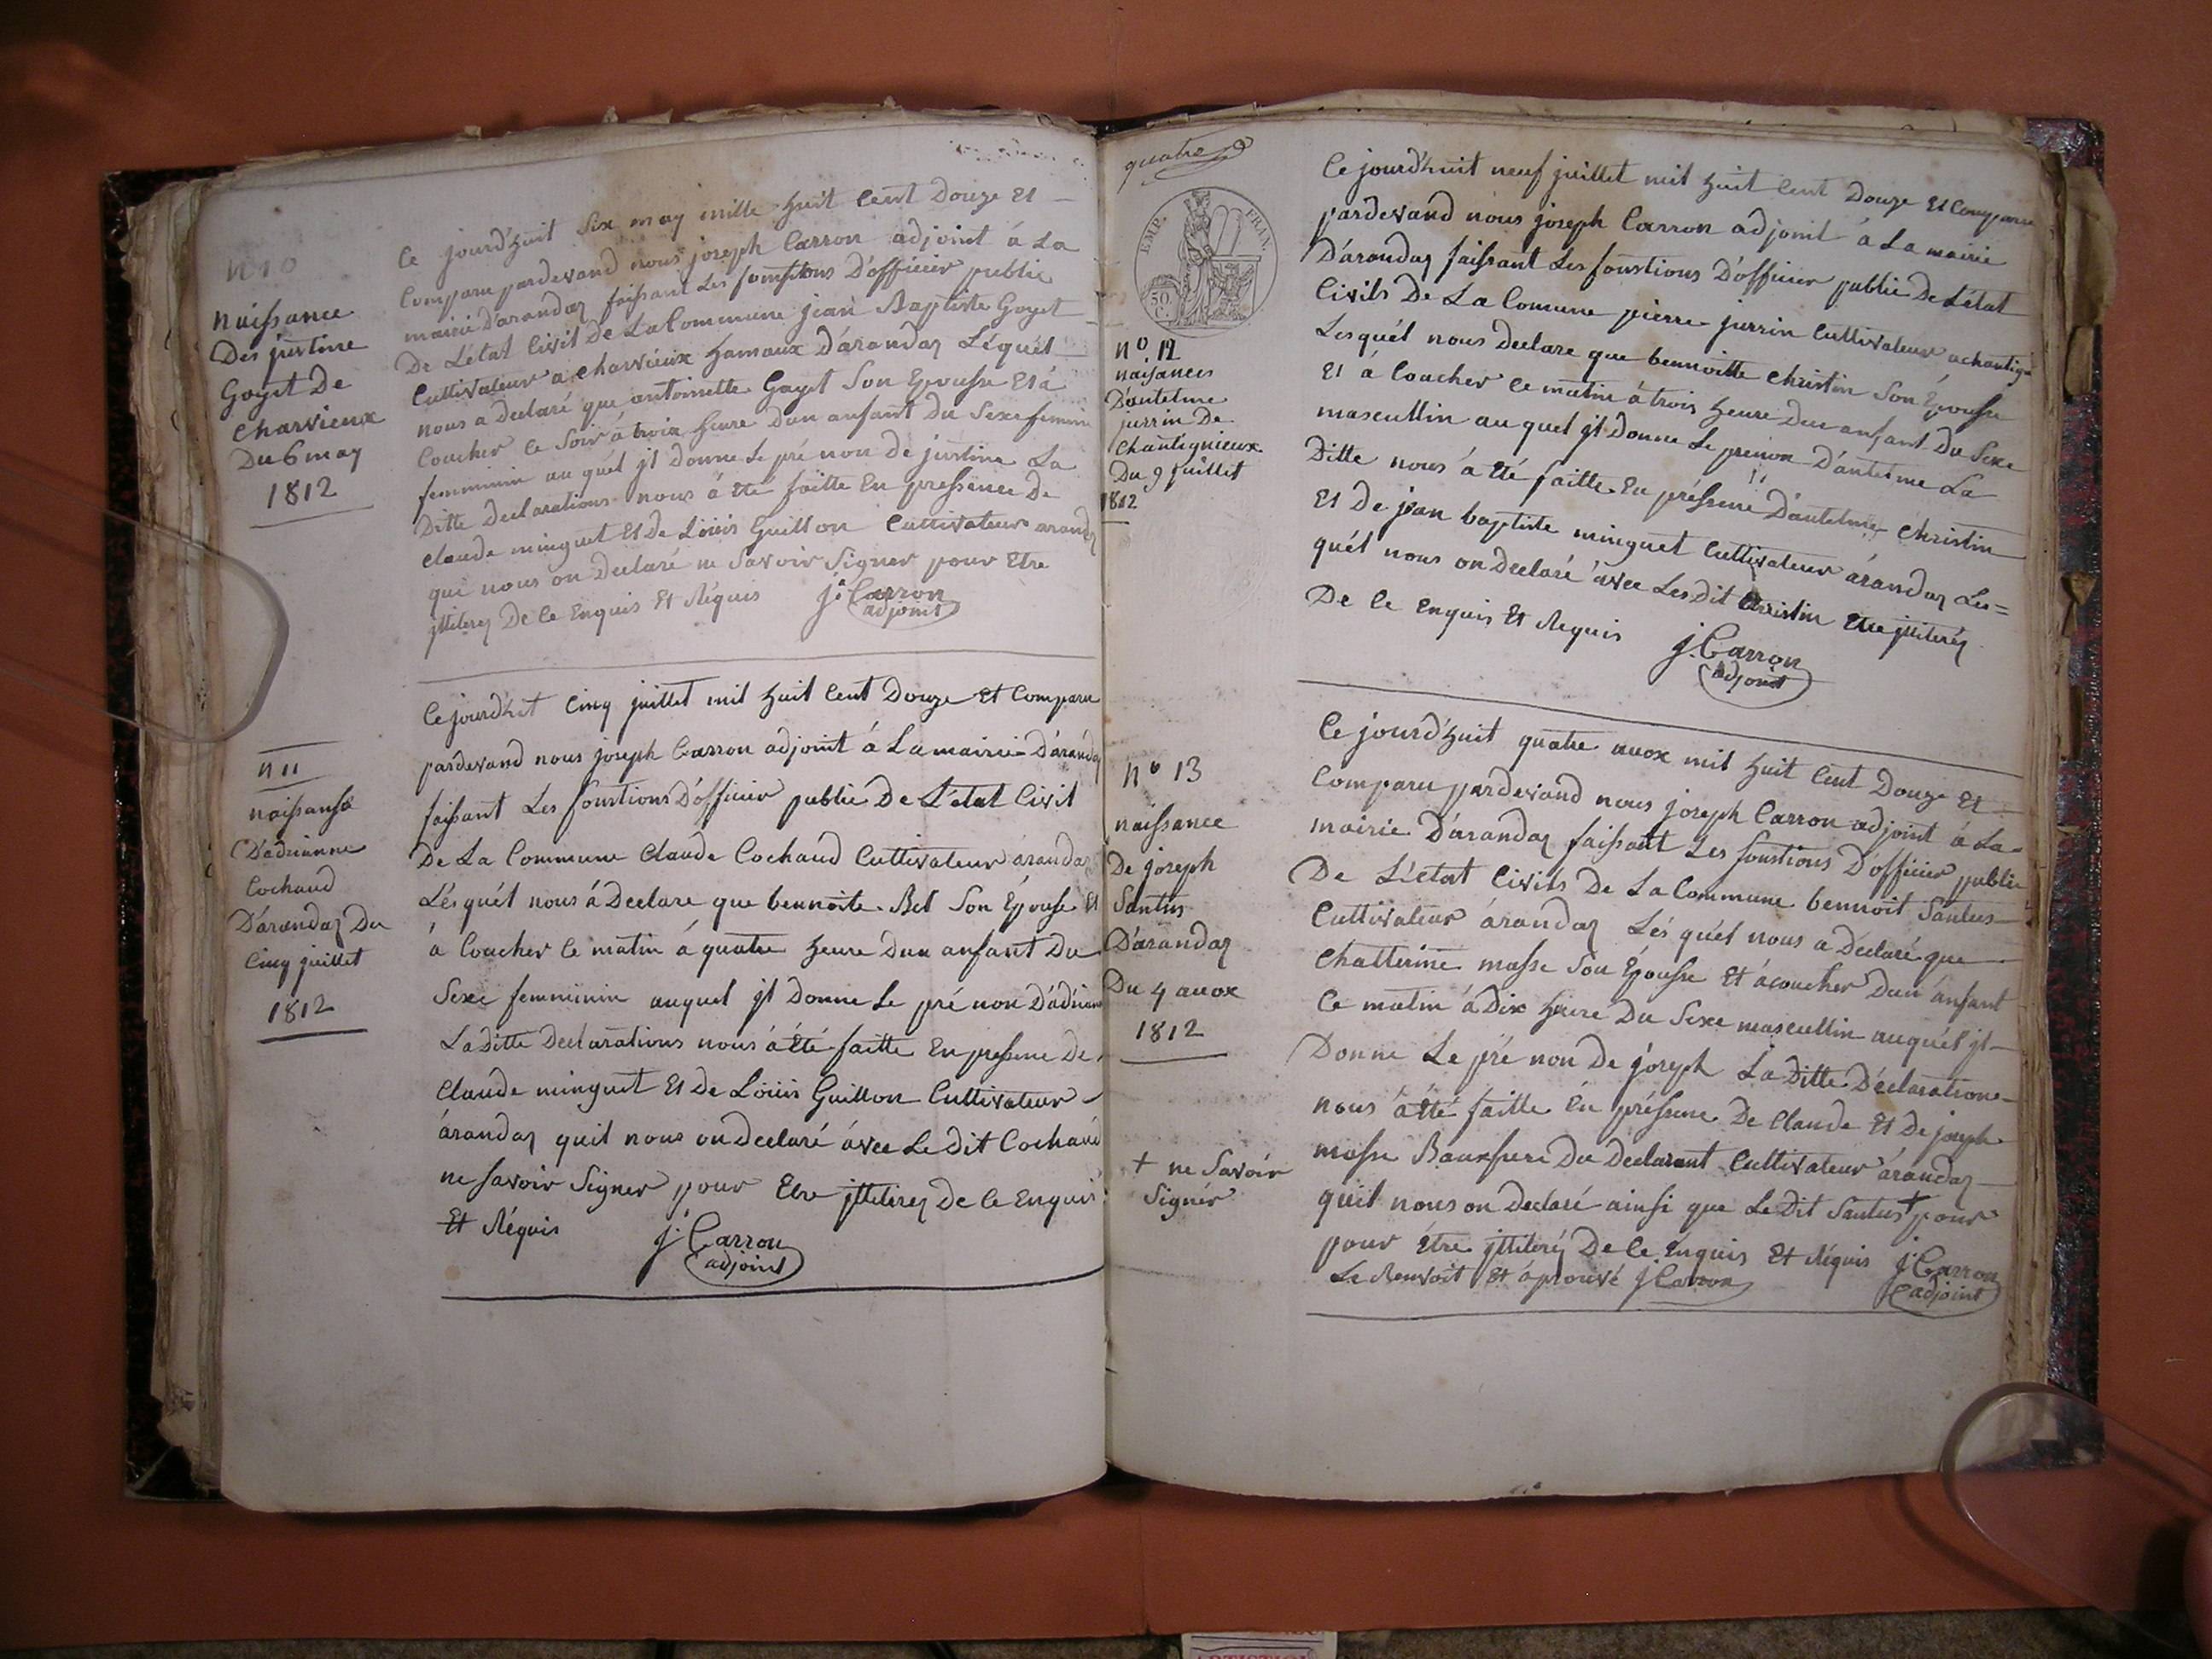 n 10
naissance
Des justine
Goyet De
Charvieux
Du 6 may
1812
Ce jourd'huit Six may mille huit Cent Douze Et
Comparu pardevand nous joseph Carron adjoint á La
mairie D'arandaz faissant Les fonstions D'officier public
De L'état Civil De La Commune jean Baptiste Goyet
Cultivateur a Charvieux hamaux D'árandaz Léquél
nous a declaré que antoinette Goyet Son Epousse Et á
Coucher Ce Soir á troix heure Dun anfant Du Sexe feminin
femminin au quél jl donne Le pré non de justine La
Ditte declarations nous á été faitte En pressence De
Claude minguet Et De Loüis Guillon Cultivateur arandaz
qui nous on Declaré ne Savoir Signer pour Etre
jttiterez De Ce Enquis Et Réquis j. Carron
adjoint
n 11
naissanse
D'adrianne
Cochaud
D'arandaz Du
Cinq juillet
1812
Ce jourd'hit Cinq juillet mil huit Cent Douze Et Comparu
pardevand nous joseph Carron adjoint á La mairie D'arandaz
faissant Les fonstions D'officier public De L'état Civil
De La Commune Claude Cochaud Cultivateur árandaz
Lés quél nous á Declare que bennoite Bel Son Épouse Et
á Coucher Ce matin á quatre heure Dun anfant Du
Sexe femminin auquel jl Donne Le pré non D'adrianne
La Ditte Declarations nous á été faitte En pressence De
Claude minguet Et De Loüis Guillon Cultivateur
árandaz quil nous on declaré ávec Le Dit Cochaud
ne savoir Signer pour Etre jttiterez De Ce Enquis
Et Réquis j Carron
adjoint
quatre
EMP. FRAN.
50 C.
n° 12
naisances
D'antelme
jurrin De
Chantignieux
Du 9 juillet
1812
Ce jourd'huit neuf juillet mil huit Cent Douze Et Comparu
pardevand nous joseph Carron adjoint á La mairie
D'árandaz faissant Les fonstions D'officier public De L'état
Civils De La Comune pierre jurrin Cultivateur a chantign
Lesquél nous declare que bennoitte Christin Son Épousse
Et á Coucher Ce matin á trois heure Dun anfant Du Sexe
mascullin au quel jl Donne Le prénon D'antelme La
Ditte nous á Eté faitte En présence D'antelme Christin
Et De jean baptiste minguet Cultivateur árandaz Les=
quél nous on declaré ávec Les Dit Christin Etre jttiteréz
De Ce Enquis Et Requis j. Carron
adjoint
n° 13
naissance
De joseph
Santus
D'arandaz
Du 4 auox
1812
Ce jourd'huit quatre auox mil huit Cent Douze Et
Comparu pardevand nous joseph Carron adjoint á La
mairie D'arandaz faissant Les fonstions D'officier public
De L'état Civils De La Commune bennoit Santus
Cultivateur árandaz Lés quél nous a Declaré que
Chatterine masse Son Épousse Et ácoucher Dun anfant
Ce matin á Dix heure Du Sexe mascullin auquél jl
Donne Le pré non De joseph La Ditte Déclarations
nous á été faitte En préssence De Claude Et De joseph
masse Bauxfrere Du Declarant Cultivateur árandaz
quil nous on Declaré ainsi que Le Dit Santus + pour
pour être jttiteréz De Ce Enquis Et Réquis j. Carron
adjoint
Le Renvoit Et áprouvé j Carron
+ ne Savoir
Signér